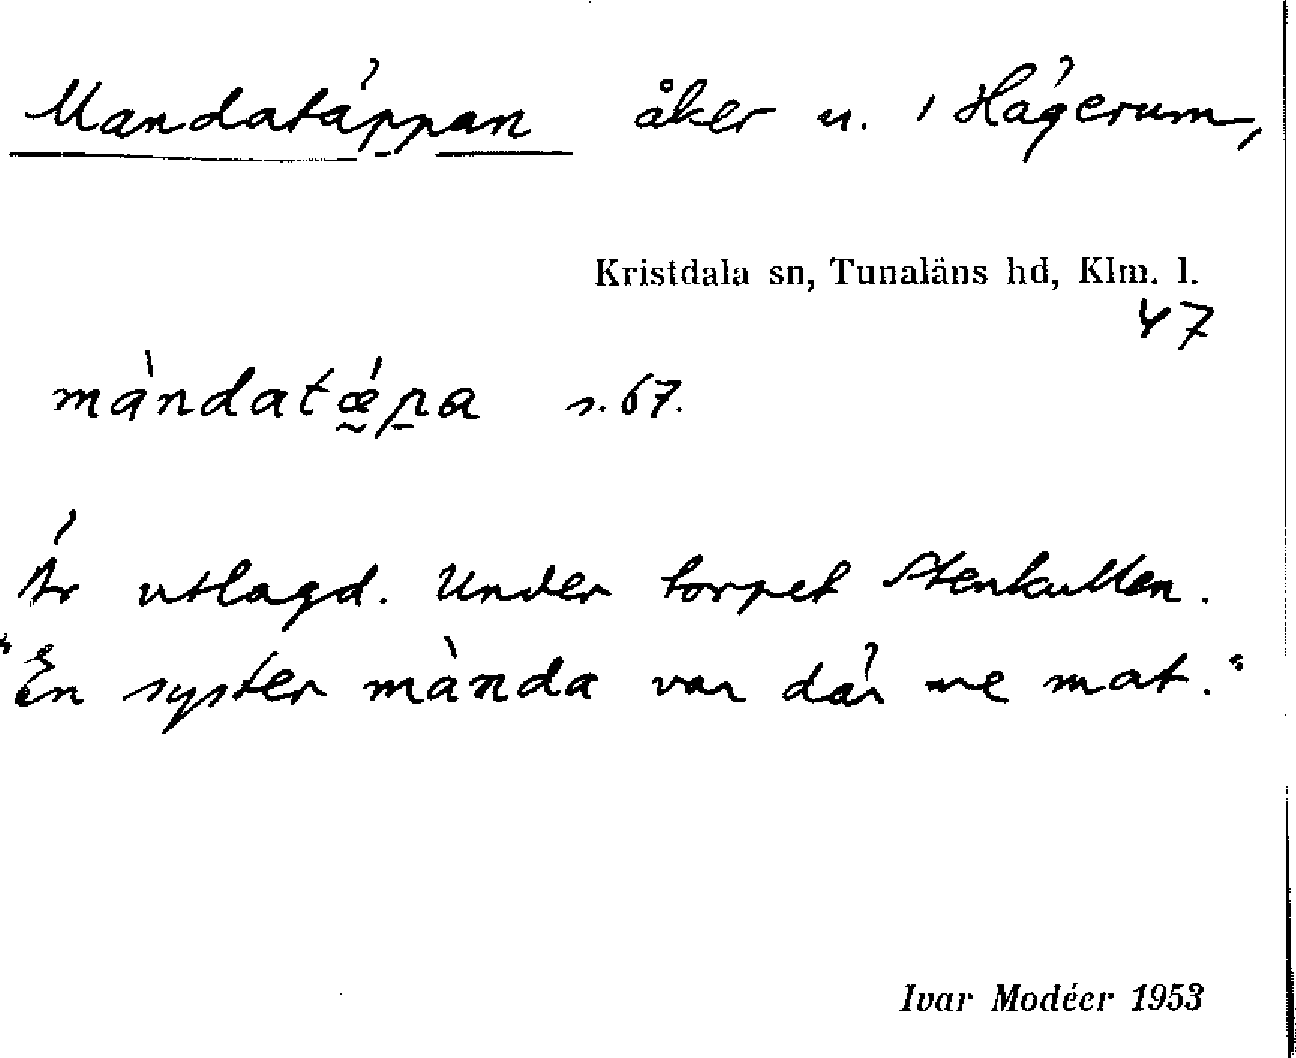 Mandatäppan åker u. 1 Hägerum,
Kristdala sn, Tunaläns hd, Klm. l.
47
màndatǽpa s. 67.
Är utlagd. Under torpet Stenkullen.
"En syster mànda var där me mat."
Ivar Modéer 1953